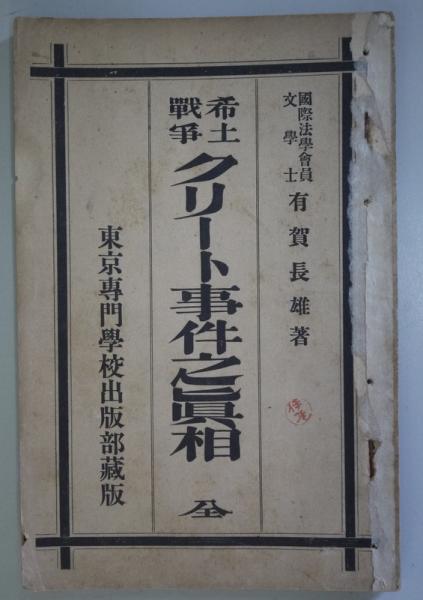 國際法學會員
文學士
有賀長雄著
希土
戰爭
クリート事件之眞相 全
東京專門學校出版部藏版